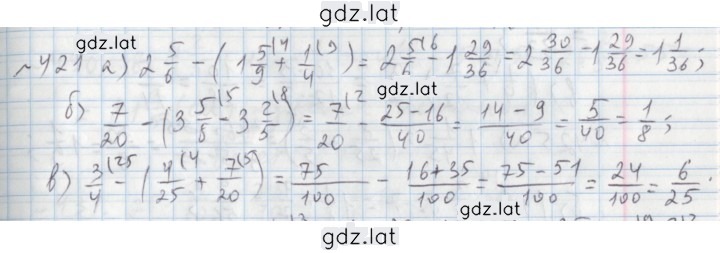 gdz.lat
gdz.lat
№421 а) 2 5/6 - (1 5/9(4 + 1/4(9) = 2 5/6(6 - 1 29/36 = 2 30/36 - 1 29/36 = 1 1/36;
gdz.lat
б) 7/20 - (3 5/8(5 - 3 2/5(8) = 7/20(2 - 25-16/40 = 14-9/40 = 5/40 = 1/8;
в) 3/4(25 - (4/25(4 + 7/20(5) = 75/100 - 16+35/100 = 75-51/100 = 24/100 = 6/25.
gdz.lat
gdz.lat